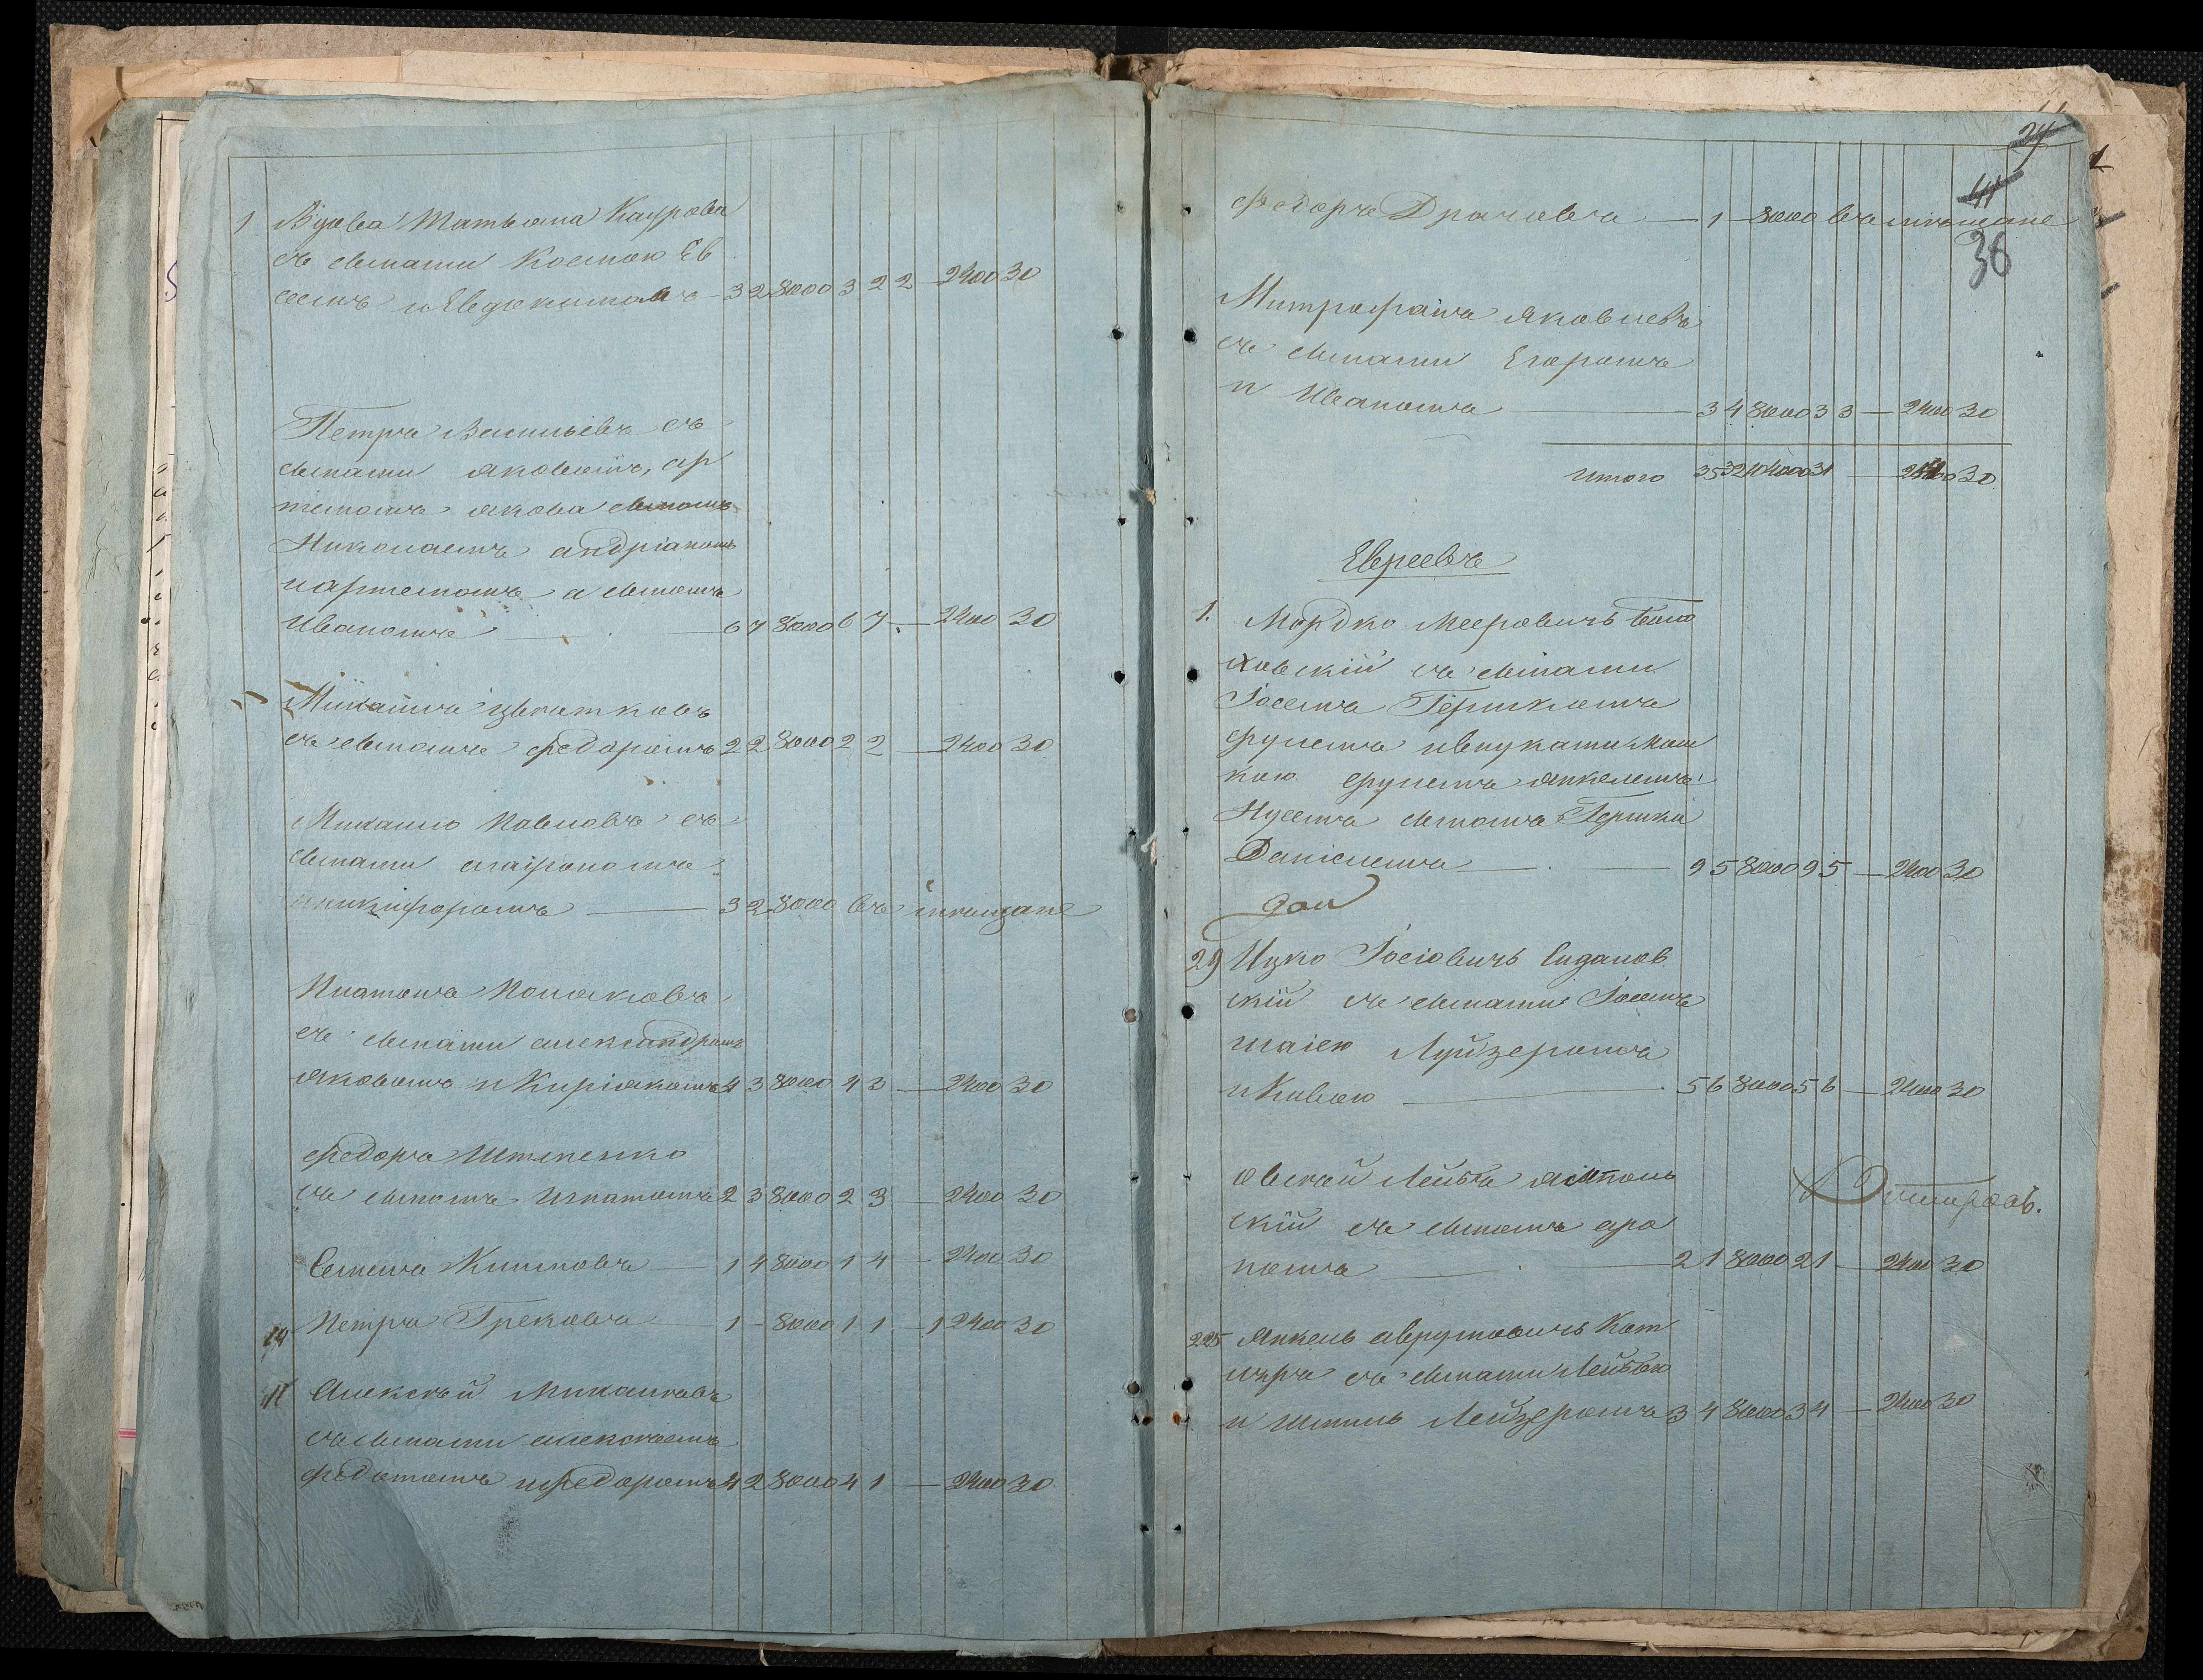 1 Вдова Татьяна Каурова
съ сынами Костою Ев
сеемъ и Евдокимомъ 3 2 8000 3 2 2 — 2400 30
Петръ Васильевъ съ
сынами Яковомъ, Ар
темомъ Якова сыномъ
Николаемъ Андріаномъ
и Артемомъ а сыномъ
Иваномъ — 6 7 8000 6 7 — 2400 30
Михайла Цвѣтковъ
съ сыномъ Федоромъ 2 2 8000 2 2 — 2400 30
Михайло Павловъ съ
сынами Агафономъ
и Никифоромъ — 3 2 8000 въ мѣщане
Платонъ Поляковъ
съ сынами Александромъ
Яковомъ и Киріякомъ 4 3 8000 4 3 — 2400 30
Федоръ
съ сыномъ Игнатомъ 2 3 8000 2 3 — 2400 30
Семенъ Климовъ — 1 4 8000 1 4 — 2400 30
Петръ Грековъ — 1 – 8000 1 1 — 1 2400 30
11 Алексѣй Михайловъ
съ сынами Алексѣемъ
Федотомъ и Федоромъ 4 2 8000 4 1 — 2400 30
24
41
38
Федоръ Драчовъ — 1 — 8000 въ мѣщане
Митрофанъ Яковлевъ
съ сынами Егоромъ
и Иваномъ — 3 4 8000 3 3 — 2400 30
Итого 30
Евреевъ
1. Мордко Мееровичъ
ховскій съ сынами
Іосемъ Гершкомъ
Фулемъ и внуками Мош
кою Фулемъ Янкелемъ
Нусемъ сыномъ Гершка
Даніелемъ — 9 5 8000 9 5 — 2400 30
29 Ицко Іосіовичъ
скій съ сынами Іосемъ
Шаіею Луйзеромъ
и Кивою — 5 6 8000 5 6 — 2400 30
Овсей Лейба Ямполь
скій съ сыномъ Аро
номъ — 2 1 8000 2 1 — 2400 30
225 Янкель Аврумовичъ Кот
ляръ съ сынами Лейбою
и Шмуль Лейзеромъ 3 4 8000 3 4 — 2400 30